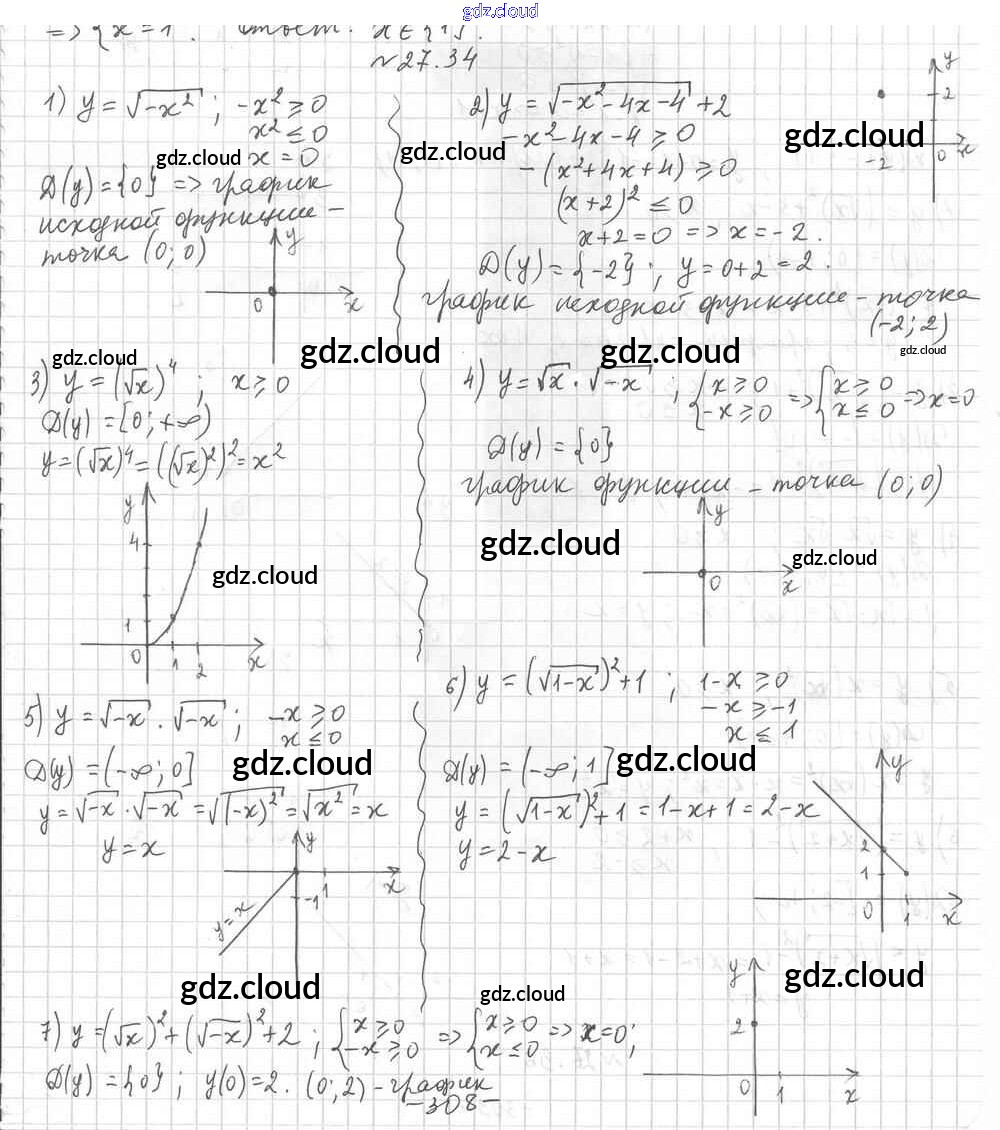 gdz.cloud
=> { x = 1 . Ответ: x ∈ {1}.
№27.34
1) y = √(-x²) ; -x² ≥ 0
x² ≤ 0
gdz.cloud x = 0
D(y) = {0} => график
исходной функции -
точка (0; 0)
y
0 x
2) y = √(-x² - 4x - 4) + 2
-x² - 4x - 4 ≥ 0
gdz.cloud -(x² + 4x + 4) ≥ 0
(x + 2)² ≤ 0
x + 2 = 0 => x = -2.
D(y) = {-2} ; y = 0 + 2 = 2.
график исходной функции - точка
(-2; 2)
y
2
gdz.cloud
-2 0 x
gdz.cloud gdz.cloud gdz.cloud gdz.cloud
3) y = (√x)⁴ ; x ≥ 0
D(y) = [0; +∞)
y = (√x)⁴ = ((√x)²)² = x²
y
4
gdz.cloud
1
0 1 2 x
4) y = √x · √(-x) ; { x ≥ 0 -x ≥ 0 => { x ≥ 0 x ≤ 0 => x = 0
D(y) = {0}
график функции - точка (0; 0)
y
gdz.cloud gdz.cloud
0 x
5) y = √(-x) · √(-x) ; -x ≥ 0
x ≤ 0
D(y) = (-∞; 0] gdz.cloud
y = √(-x) · √(-x) = √((-x)²) = √(x²) = x
y = x
y
-1 1 x
y = x
gdz.cloud
6) y = (√(1-x))² + 1 ; 1 - x ≥ 0
-x ≥ -1
x ≤ 1
D(y) = (-∞; 1] gdz.cloud
y = (√(1-x))² + 1 = 1 - x + 1 = 2 - x
y = 2 - x
y
2
1
0 1 x
gdz.cloud gdz.cloud
7) y = (√x)² + (√(-x))² + 2 ; { x ≥ 0 -x ≥ 0 => { x ≥ 0 x ≤ 0 => x = 0;
D(y) = {0} ; y(0) = 2. (0; 2) - график
y
2
0 1 x
-308-